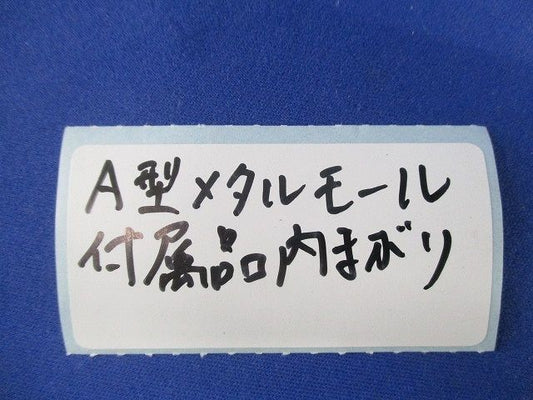 A型メタルモール
付属品内まがり